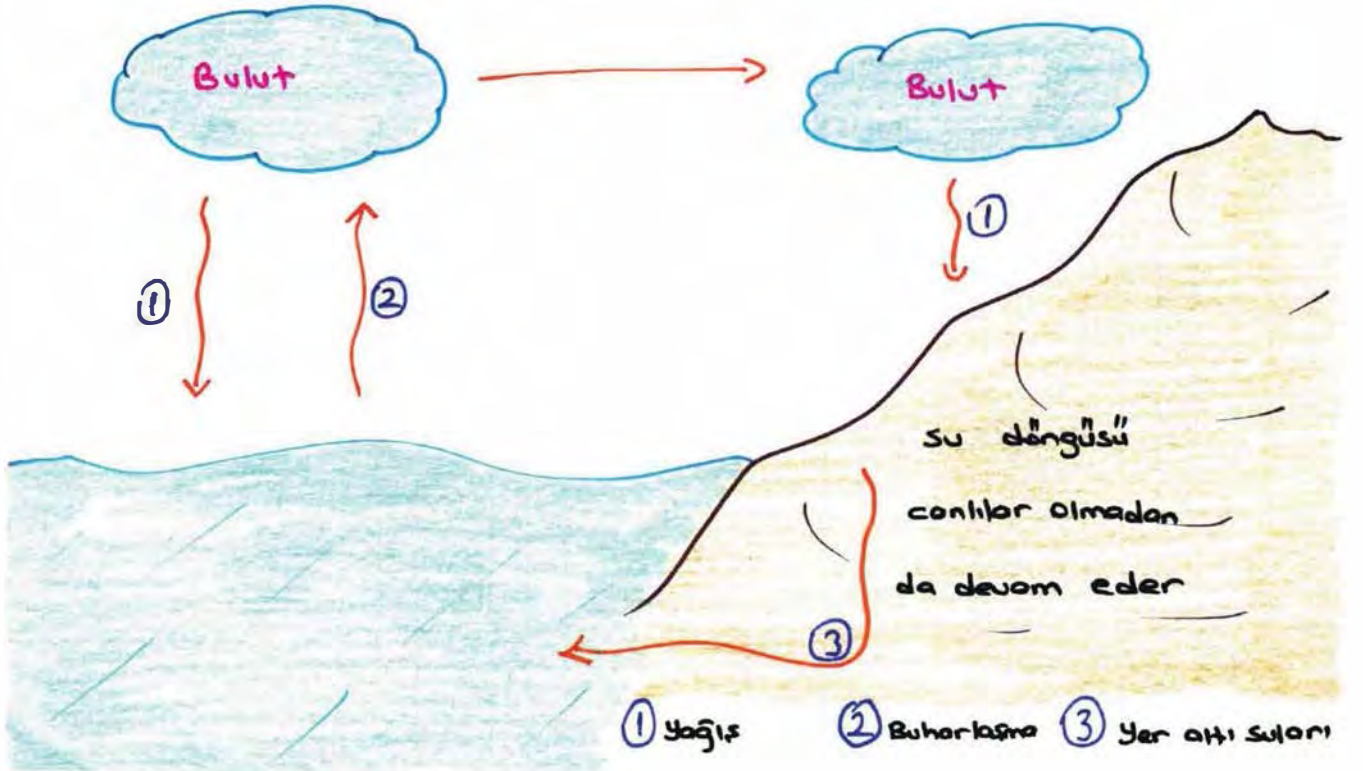 Bulut
Bulut
①
②
①
su döngüsü
canlılar olmadan
da devam eder
③
① Yağış ② Buharlaşma ③ Yer altı suları